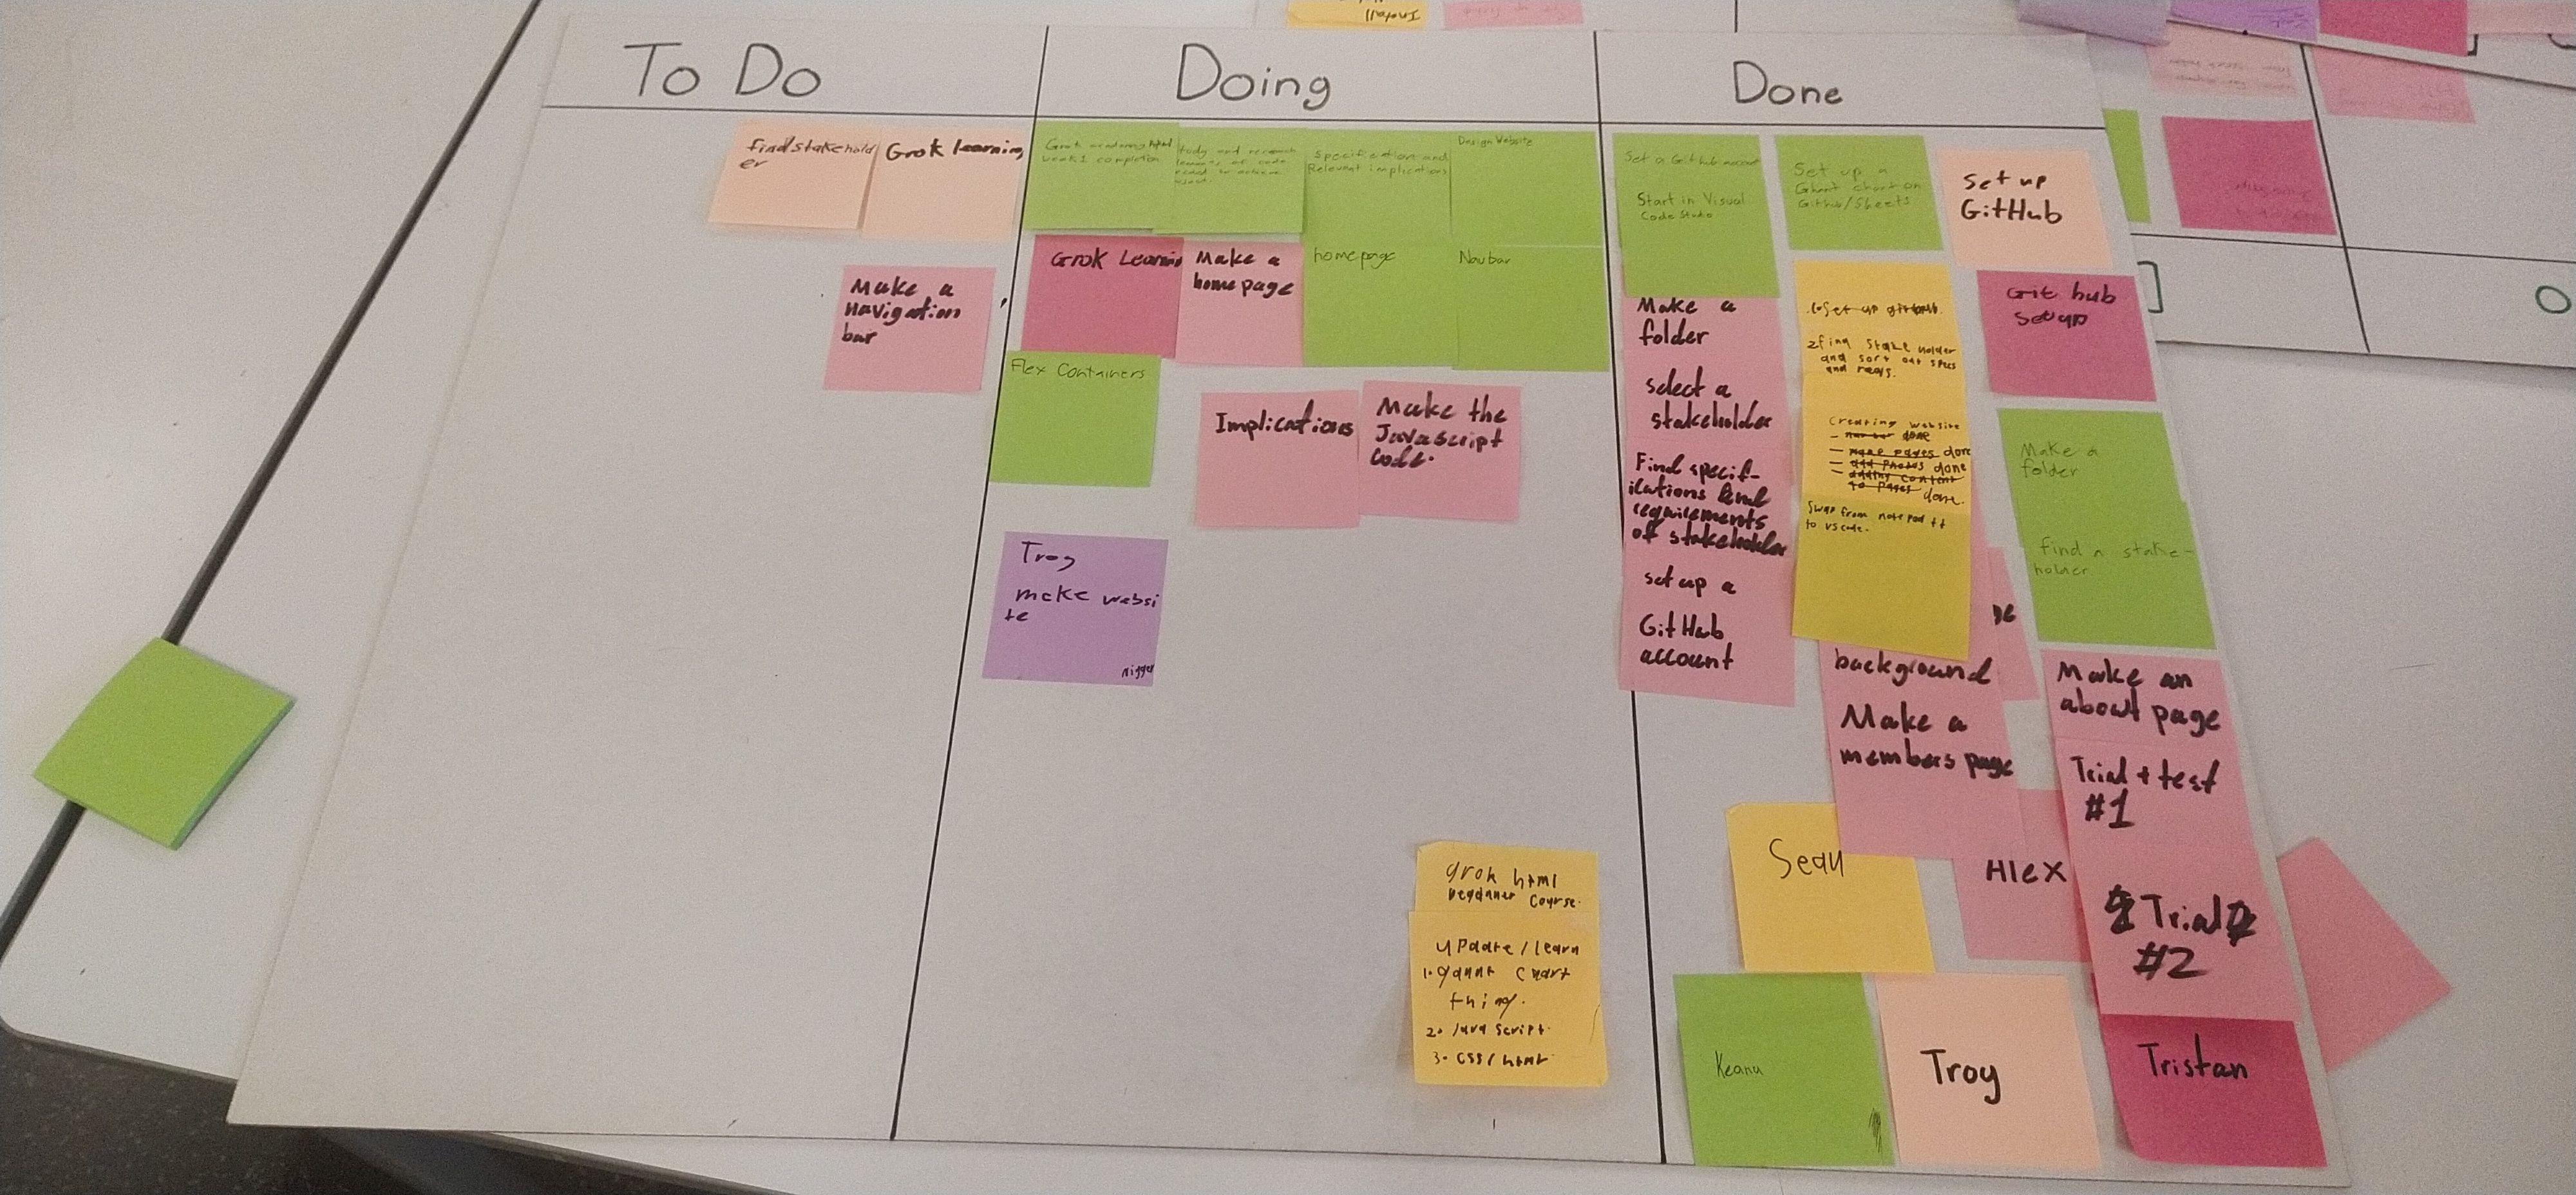 Install
To Do
Doing
Done
find stakehold
er
Grok learning
Make a
navigation
bar
week 1 completion
Specification and
Relevant implications
Design Website
Grok Learnin
Make a
home page
homepage
Navbar
Flex Containers
Implications
Make the
Javascript
Code.
Troy
make websi
te
nigger
grok html
course.
update/learn
1. gannt chart
thing.
2. Java Script.
3. CSS/html
Set a Github account
Start in Visual
Code Studio
Set up a
Ghant chart on
Github/Sheets
Set up
GitHub
Make a
folder
select a
stakeholder
Find specif-
ications and
requirements
of stakeholder
set up a
GitHub
account
Set up github.
2 find Stake holder
and sort out specs
and reqs.
Creating website
- nav bar done
- make pages done
- add photos done
- adding content
to pages done.
Swap from notepad ++
to vscode.
Git hub
setup
Make a
folder
find a stake-
holder
background
Make a
members page
Make an
about page
Trial + test
#1
Trial
#2
Sean
Alex
Keanu
Troy
Tristan